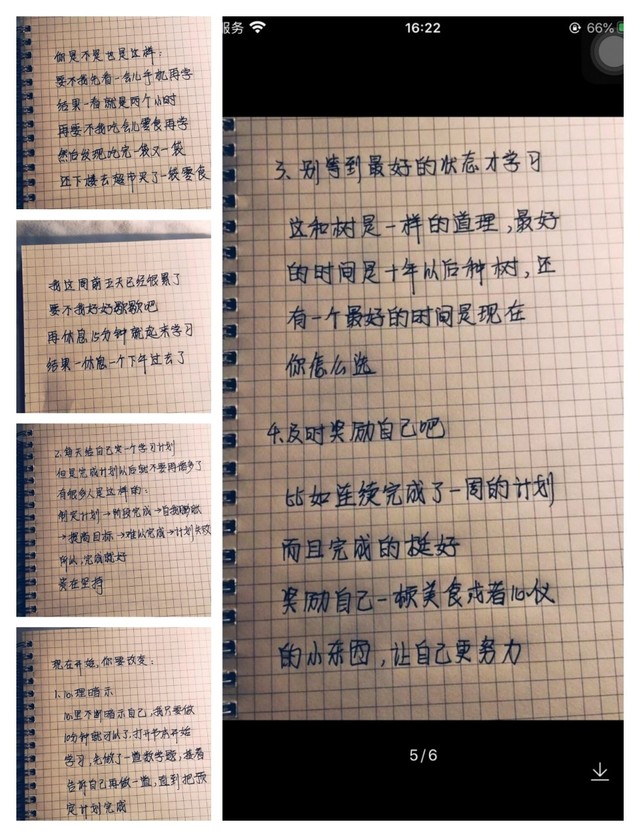 你是不是也是这样:
要不我先看一会儿手机再学
结果一看就是两个小时
再要不我吃会儿零食再学
然后发现吃完一袋又一袋
还下楼去超市买了一袋零食
我这周前五天已经很累了
要不我好好歇歇吧
再休息15分钟就起来学习
结果一休息一个下午过去了
2.每天给自己定一个学习计划
但是完成计划以后就不要再学多了
有很多人是这样的:
制定计划→阶段完成→自我膨胀
→提高目标→难以完成→计划失败
所以,完成就好
贵在坚持
现在开始,你要改变:
1.心理暗示
心里不断暗示自己,我只要做
10分钟就可以了.打开书本开始
学习,先做了一道数学题,接着
告诉自己再做一道,直到把预
定计划完成
服务
16:22
66%
3、别等到最好的状态才学习
这和树是一样的道理,最好
的时间是十年以后种树,还
有一个最好的时间是现在
你怎么选
4.及时奖励自己吧
比如连续完成了一周的计划
而且完成的挺好
奖励自己一顿美食或者心仪
的小东西,让自己更努力
5/6